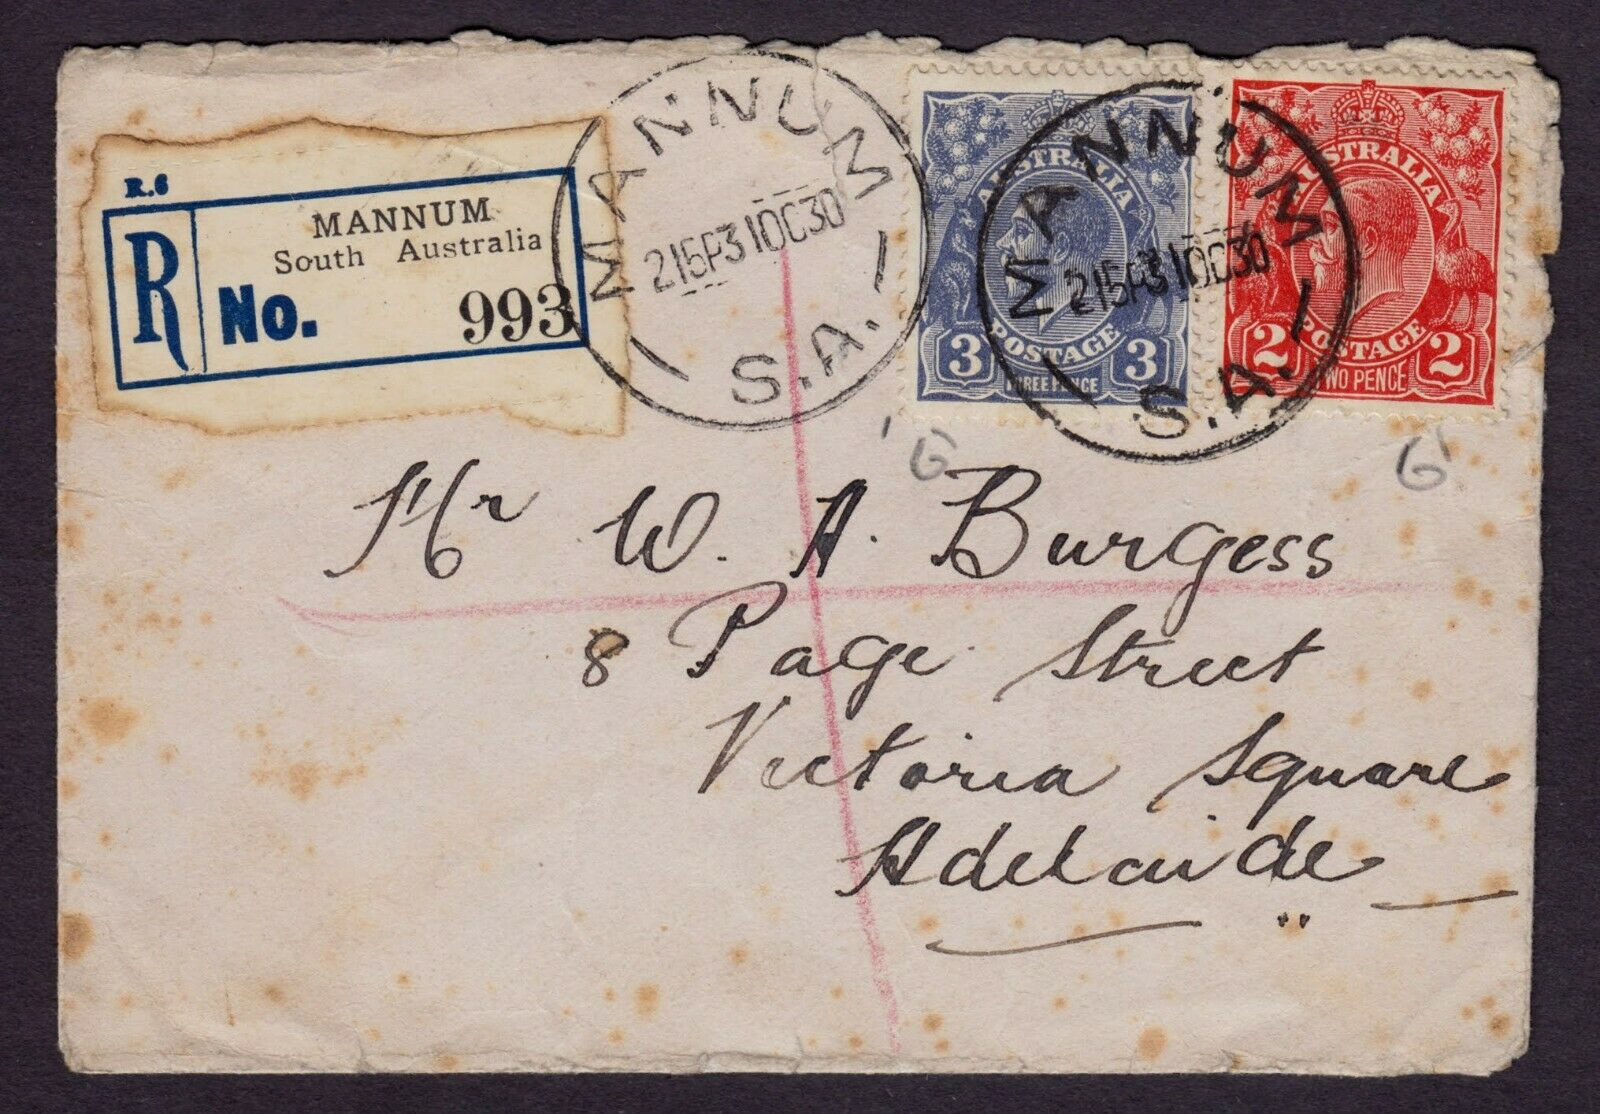 R.6
R
MANNUM
South Australia
No. 993
MANNUM
215P31OC30
S.A.
AUSTRALIA
3 POSTAGE 3
THREE PENCE
MANNUM
215P31OC30
S.A.
AUSTRALIA
2 POSTAGE 2
TWO PENCE
'G G'
Mr W. A. Burgess
8 Page Street
Victoria Square
Adelaide